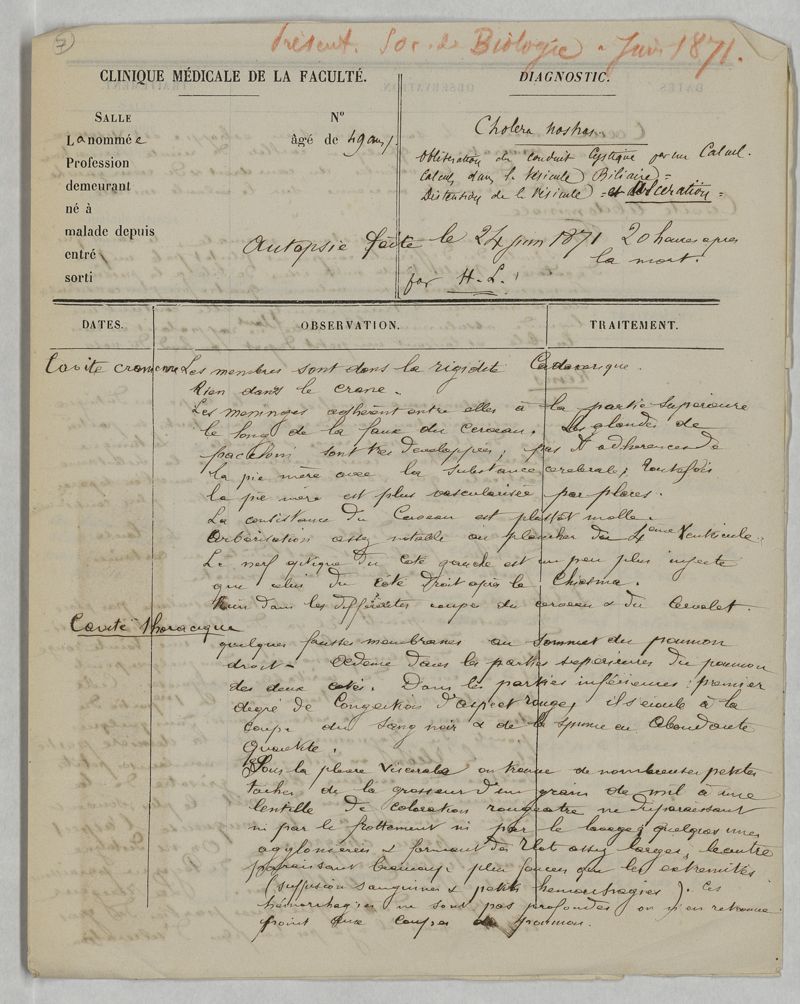 7
Présent. Soc. de Biologie. Juin 1871.
CLINIQUE MÉDICALE DE LA FACULTÉ.
DIAGNOSTIC.
SALLE Nº
La nommée âgé de 49 ans
Profession
demeurant
né à
malade depuis
entré
sorti
Cholera nostras.
Obliteration du conduit Cystique par un Calcul.
Calculs dans la Vésicule Biliaire =
Distention de la Vésicule = et Ulcération =
Autopsie faite le 24 juin 1871 20 heures après
la mort.
par H. L.
DATES. OBSERVATION. TRAITEMENT.
Cavité cranienne Les membres sont dans la rigidité Cadaverique.
Rien dans le crane.
Les meninges adhèrent entre elles à la partie superieure
le long de la faux du cerveau. Les glandes de
pacchioni sont tres developpées, pas d'adherences de
la pie mère avec la substance cerebrale, toutefois
la pie mère est plus vascularisée par places.
La consistance du Cerveau est plustôt molle.
Arborisation assez notable au plancher du 4eme Ventricule.
Le nerf optique du coté gauche est un peu plus injecté
que celui du côté Droit après le Chiasma.
Rien dans les différentes coupes du cerveau & du Cervelet.
Cavité thoracique
quelques fausses membranes au sommet du poumon
droit - Oedème dans les parties superieures du poumon
des deux cotés. Dans les parties inférieures: premier
degré de Congestion d'aspect rouge, il s'écoule à la
coupe du sang noir & de la spume en Abondante
quantité.
Sous la plevre Viscerale on trouve de nombreuses petites
taches de la grosseur d'un grain de mil à une
lentille de coloration rougeatre ne disparaissant
ni par le frottement ni par le lavage, quelques unes
agglomérées & formant des Ilot assez larges, le centre
paraissant beaucoup plus foncés que les extremités
(suffusion sanguines & petites hemorrhagies). Ces
hémorrhagies ne sont pas profondes on n'en retrouve
point aux coupes du poumon.